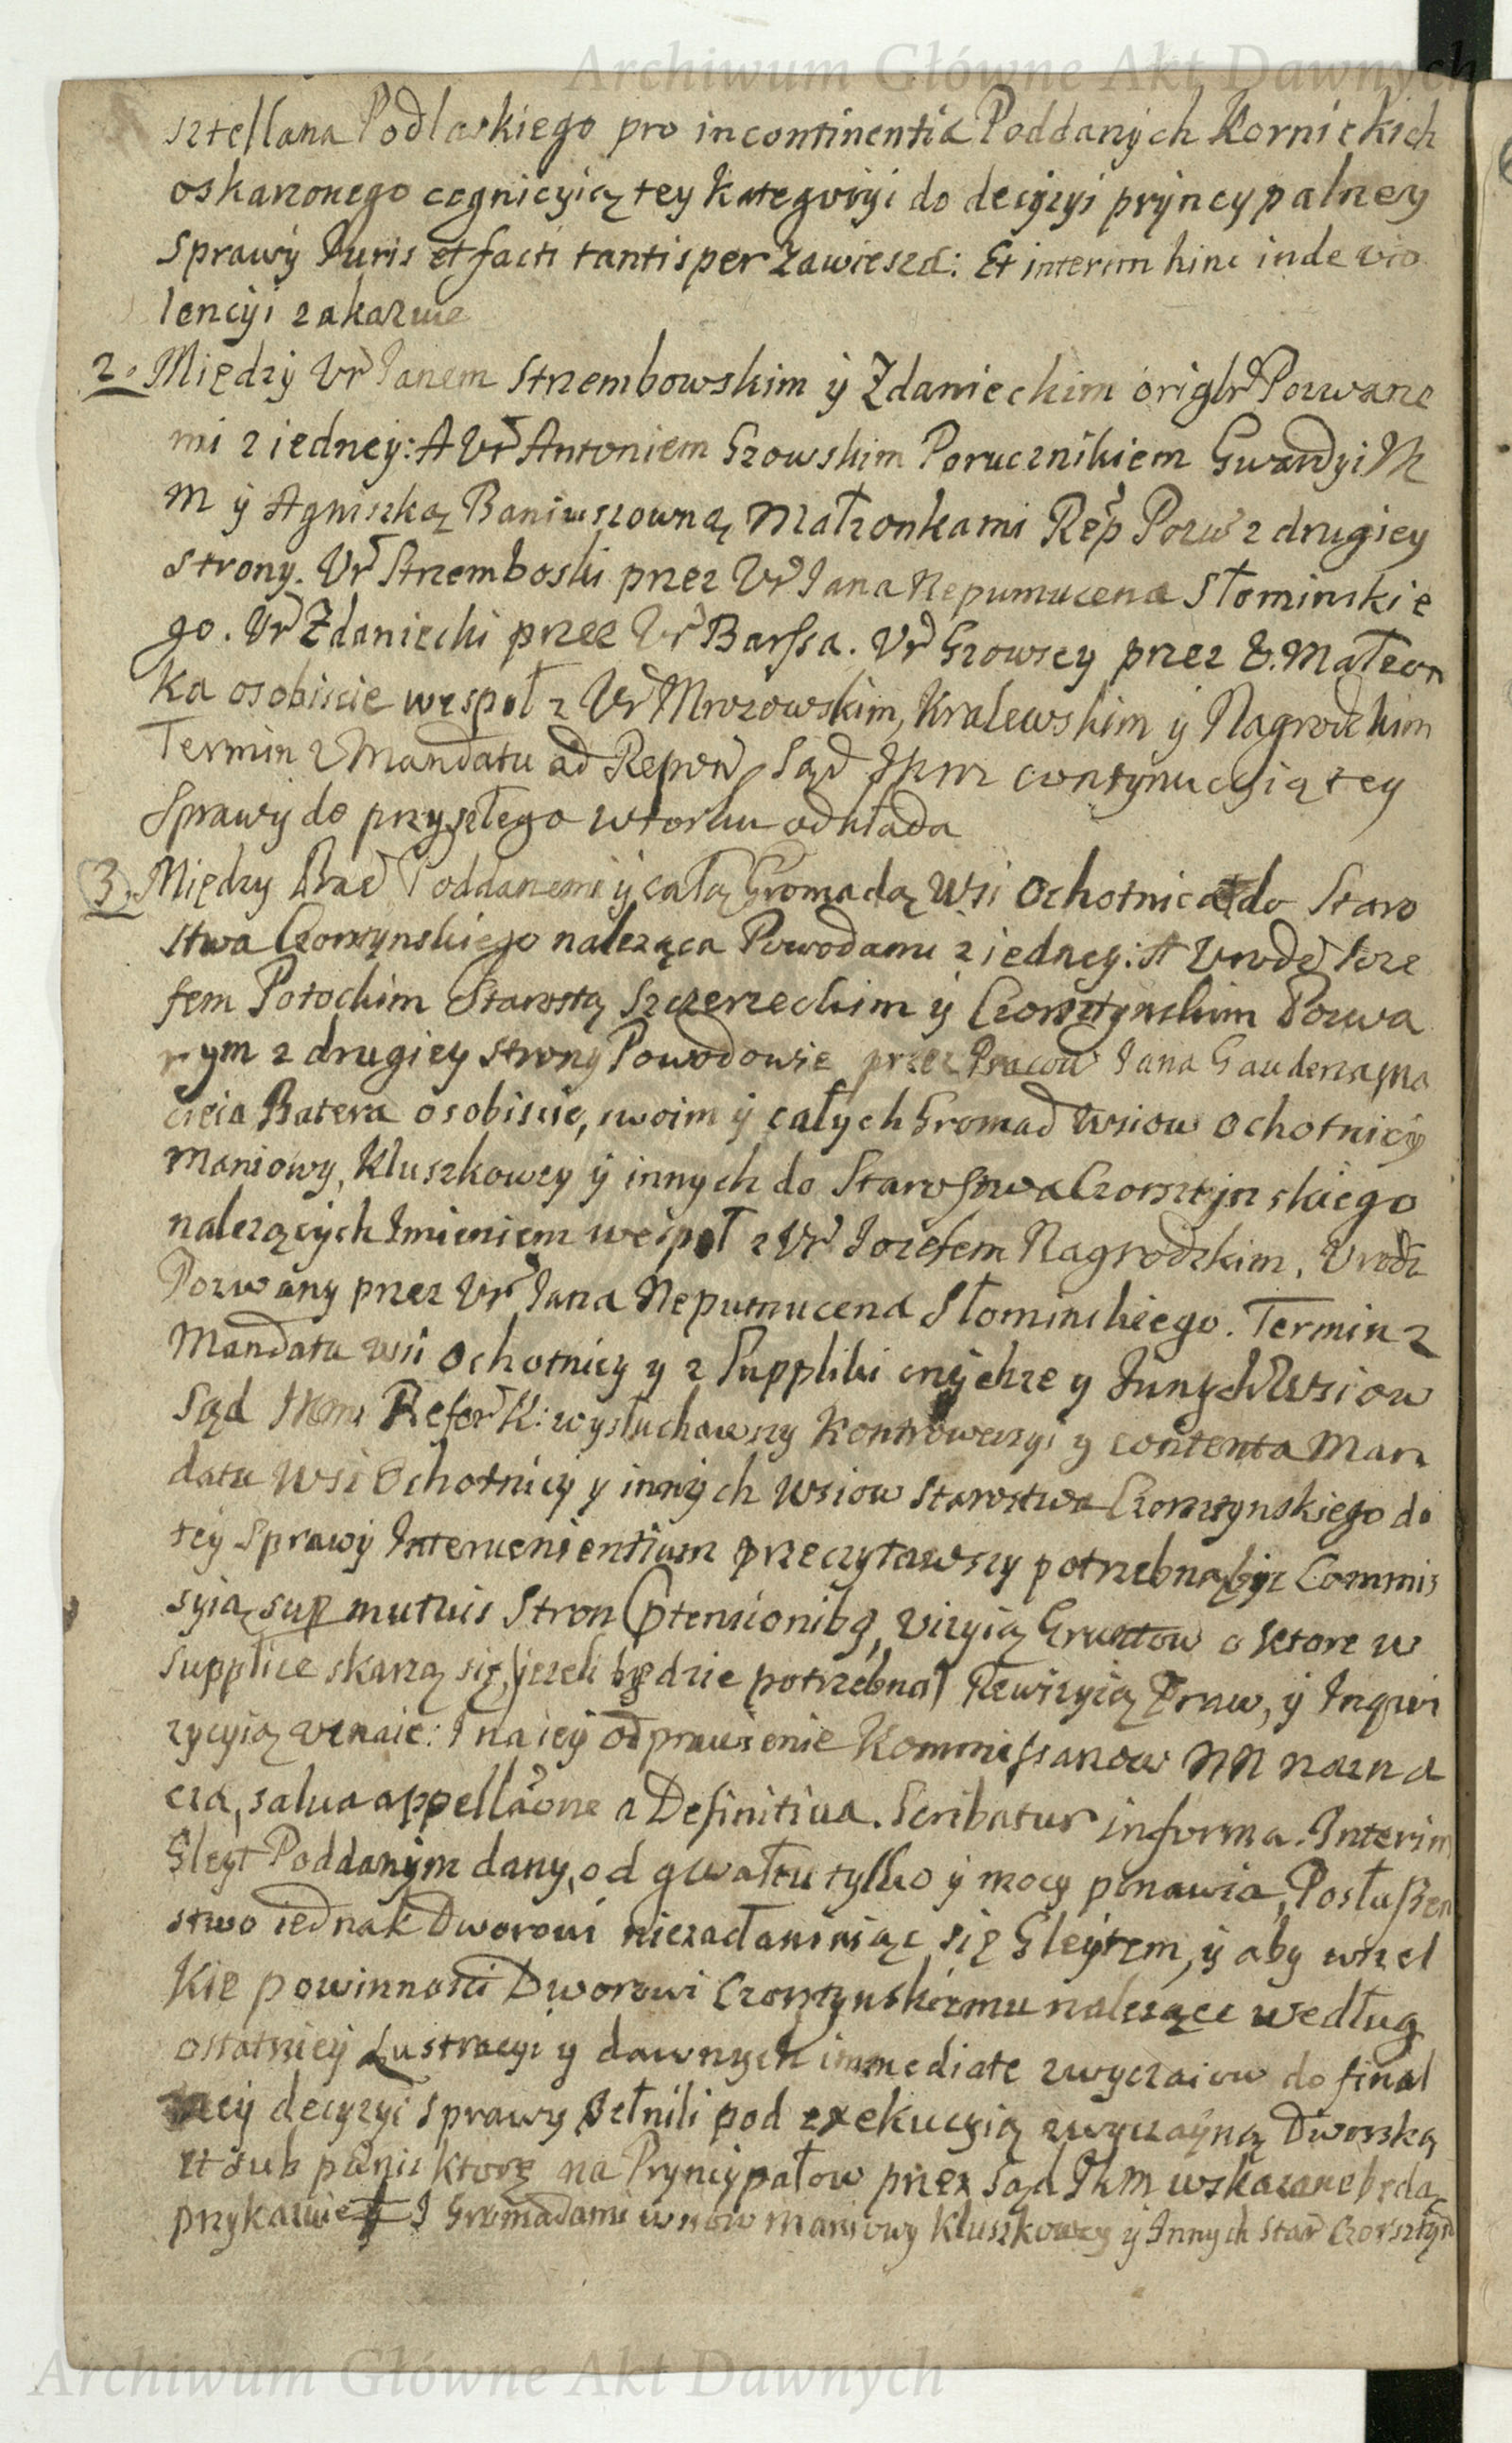 Archiwum Główne Akt Dawnych
sztellana Podlaskiego pro incontinentia Poddanych Kornickich
oskarzonego cognicyią tey Kategoryi do decyzyi pryncypalney
Sprawy Juris et facti tantisper zawiesza: Et interim hinc inde vio
lencyi zakazuie
2. Między Ur Janem Strzembowskim y Zdanieckim origlr Pozwane
mi z iedney: A Ur Antoniem Gzowskim Porucznikiem Gwardyi K
M y Agniszką Baniuszowną Małzonkami Rep Pozw z drugiey
strony. Ur Strzemboski przez Ur Jana Nepumucena Słominskie
go. Ur Zdaniecki przez Ur Barssa. Ur Gzowscy przez U. Małzon
Ka osobiscie wespoł z Ur Mrozowskim, Kralewskim y Nagrodzkim
Termin z Mandatu ad Repon Sąd JKM contynuacyią tey
Sprawy do przyszłego wtorku odkłada
3. Między Prac Poddanemi y całą Gromadą Wsi Ochotnica do Staro
stwa Czorsztynskiego naleząca Powodami z iedney: A Urodz Joze
fem Potockim Starostą Szczerzeckim y Czorsztynskim Pozwa
nym z drugiey strony Powodowie przez Pracow Jana Gauderza Ma
cieia Batera osobiscie, swoim y całych Gromad Wsiow Ochotnicy
Maniowy, Kluszkowcy y innych do Starostwa Czorsztynskiego
nalezących Jmieniem wespoł z Ur Jozefem Nagrodzkim, Urodz
Pozwany przez Ur Jana Nepumucena Słominskiego. Termin z
Mandatu wsi Ochotnicy y z Suppliki onychze y Innych Wsiow
Sąd JKM Refer K: wysłuchawszy Kontrowerzyi y contenta Man
datu Wsi Ochotnicy y innych Wsiow Starostwa Czorsztynskiego do
tey Sprawy Intervenientium przeczytawszy potrzebną byc Commis
syią sup mutuis Stron Ptensionibq, Vizyią Gruntow o ktore w
Supplice skarzą się, (jezeli będzie potrzebna) Rewizyią Praw, y Inqwi
zycyią uznaie: I na iey odprawienie Kommissarzow NN nazna
cza, salva appellaone a Definitiva. Scribatur in forma. Interim
Gleyt Poddanym dany, od gwałtu tylko y mocy ponawia, Posłuszen
stwo iednak Dworowi niezasłaniaiąc się Gleytem, y aby wszel
Kie powinnosci Dworowi Czorsztynskiemu nalezące według
ostatniey Lustracyi y dawnych immediate zwyczaiow do final
ney decyzyi Sprawy pełnili pod exekucyią zwyczayną Dworską
et sub pœnis ktore na Pryncypałow przez Sąd JKM wskazane będą
przykazuie I Gromadami wsiow Maniowy Kluszkowcy y Innych Star Czorsztyn
Archiwum Główne Akt Dawnych